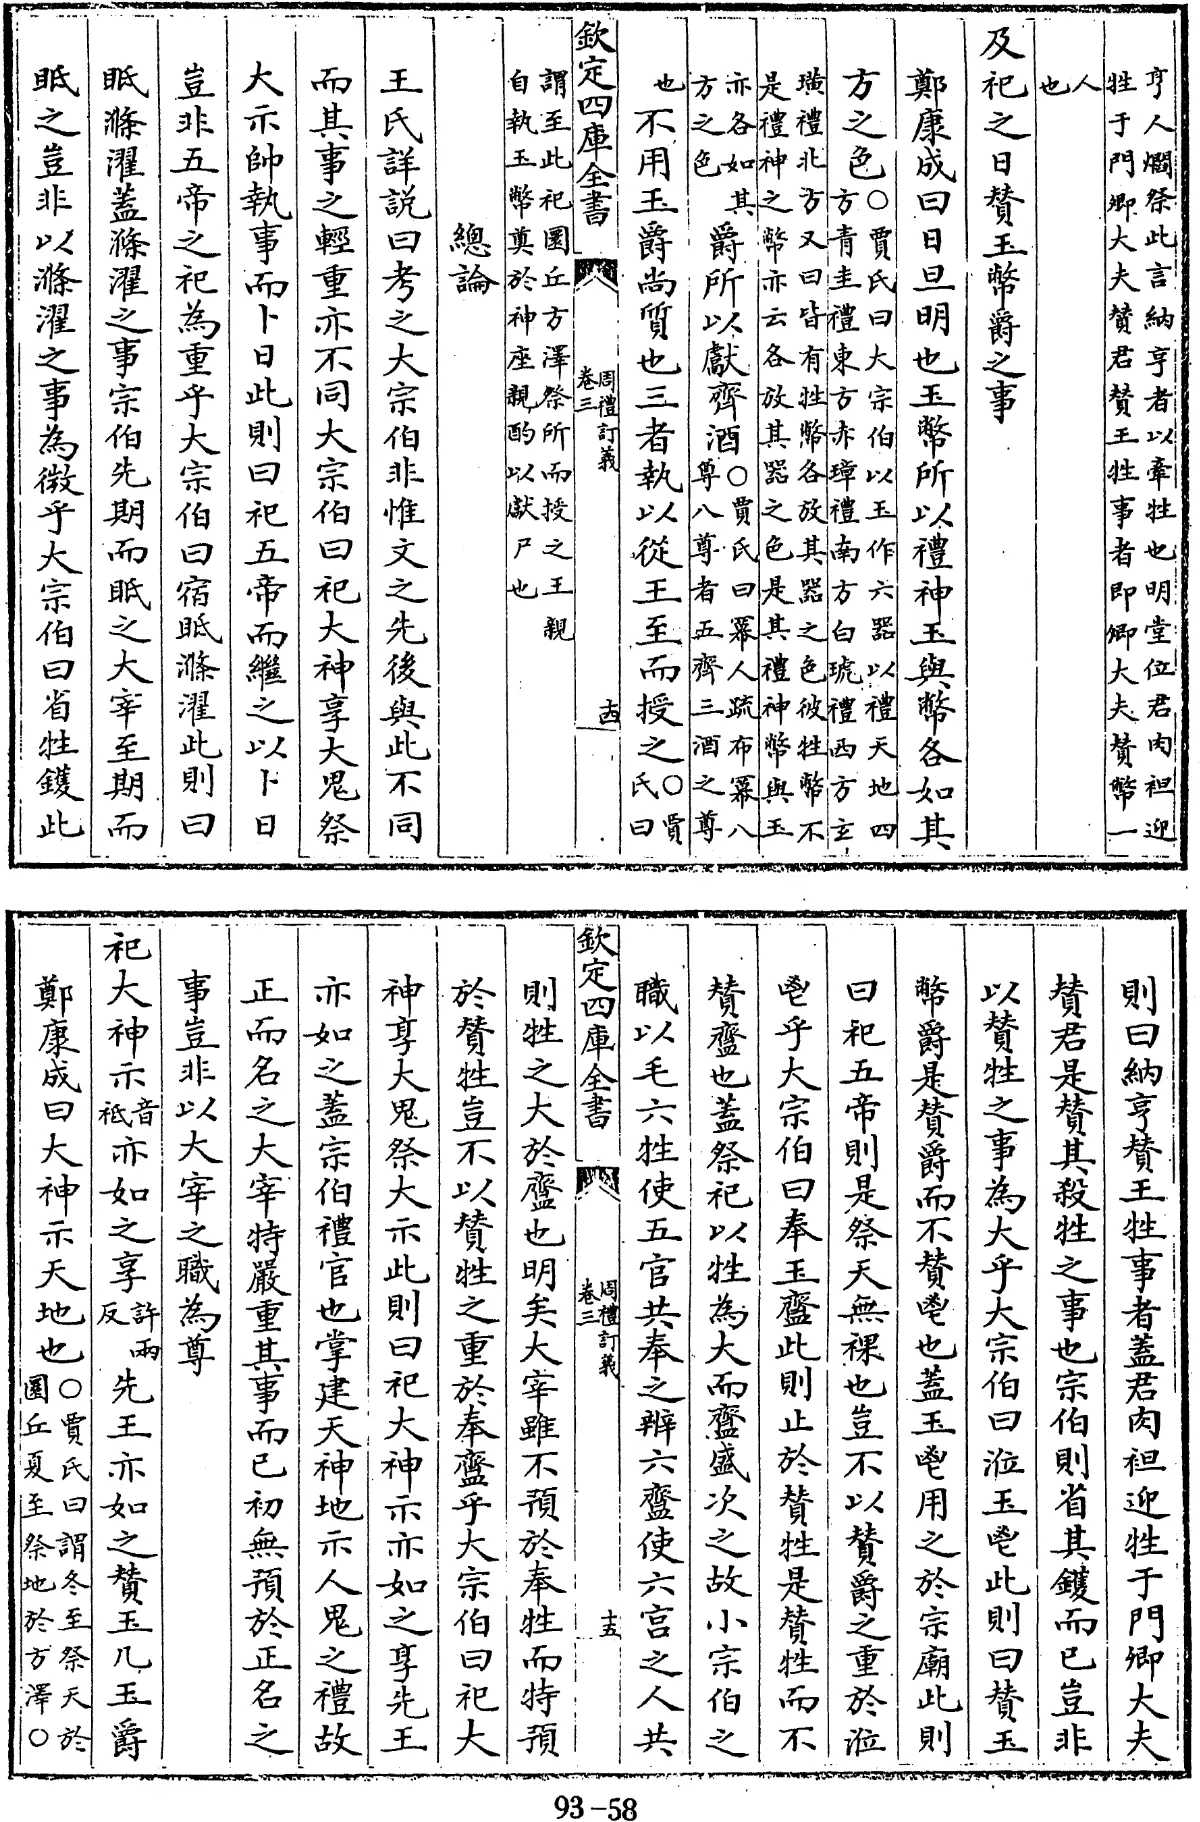 亨人爓祭此言納亨者以牽牲也明堂位君肉袒迎
牲于門卿大夫賛君賛王牲事者即卿大夫賛幣一
人
也
及祀之日賛玉幣爵之事
鄭康成曰日旦明也玉幣所以禮神玉與幣各如其
方之色○賈氏曰大宗伯以玉作六器以禮天地四
方青圭禮東方赤璋禮南方白琥禮西方玄
璜禮北方又曰皆有牲幣各放其器之色彼牲幣不
是禮神之幣亦云各放其器之色是其禮神幣與玉
亦各如其
方之色
爵所以獻齊酒○賈氏曰冪人疏布冪八
尊八尊者五齊三酒之尊
也
不用玉爵尚質也三者執以從王至而授之○賈
氏曰
欽定四庫全書
周禮訂義
卷三
十四
謂至此祀圜丘方澤祭所而授之王親
自執玉幣奠於神座親酌以獻尸也
總論
王氏詳説曰考之大宗伯非惟文之先後與此不同
而其事之輕重亦不同大宗伯曰祀大神享大鬼祭
大示帥執事而卜日此則曰祀五帝而繼之以卜日
豈非五帝之祀為重乎大宗伯曰宿眡滌濯此則曰
眡滌濯蓋滌濯之事宗伯先期而眡之大宰至期而
眡之豈非以滌濯之事為微乎大宗伯曰省牲鑊此
則曰納亨賛王牲事者蓋君肉袒迎牲于門卿大夫
賛君是賛其殺牲之事也宗伯則省其鑊而已豈非
以賛牲之事為大乎大宗伯曰涖玉鬯此則曰賛玉
幣爵是賛爵而不賛鬯也蓋玉鬯用之於宗廟此則
曰祀五帝則是祭天無祼也豈不以賛爵之重於涖
鬯乎大宗伯曰奉玉齍此則止於賛牲是賛牲而不
賛齍也蓋祭祀以牲為大而齍盛次之故小宗伯之
職以毛六牲使五官共奉之辨六齍使六宮之人共
欽定四庫全書
周禮訂義
卷三
十五
則牲之大於齍也明矣大宰雖不預於奉牲而特預
於賛牲豈不以賛牲之重於奉齍乎大宗伯曰祀大
神享大鬼祭大示此則曰祀大神示亦如之享先王
亦如之蓋宗伯禮官也掌建天神地示人鬼之禮故
正而名之大宰特嚴重其事而已初無預於正名之
事豈非以大宰之職為尊
祀大神示音
祗
亦如之享許兩
反
先王亦如之賛玉几玉爵
鄭康成曰大神示天地也○賈氏曰謂冬至祭天於
圜丘夏至祭地於方澤○
93-58